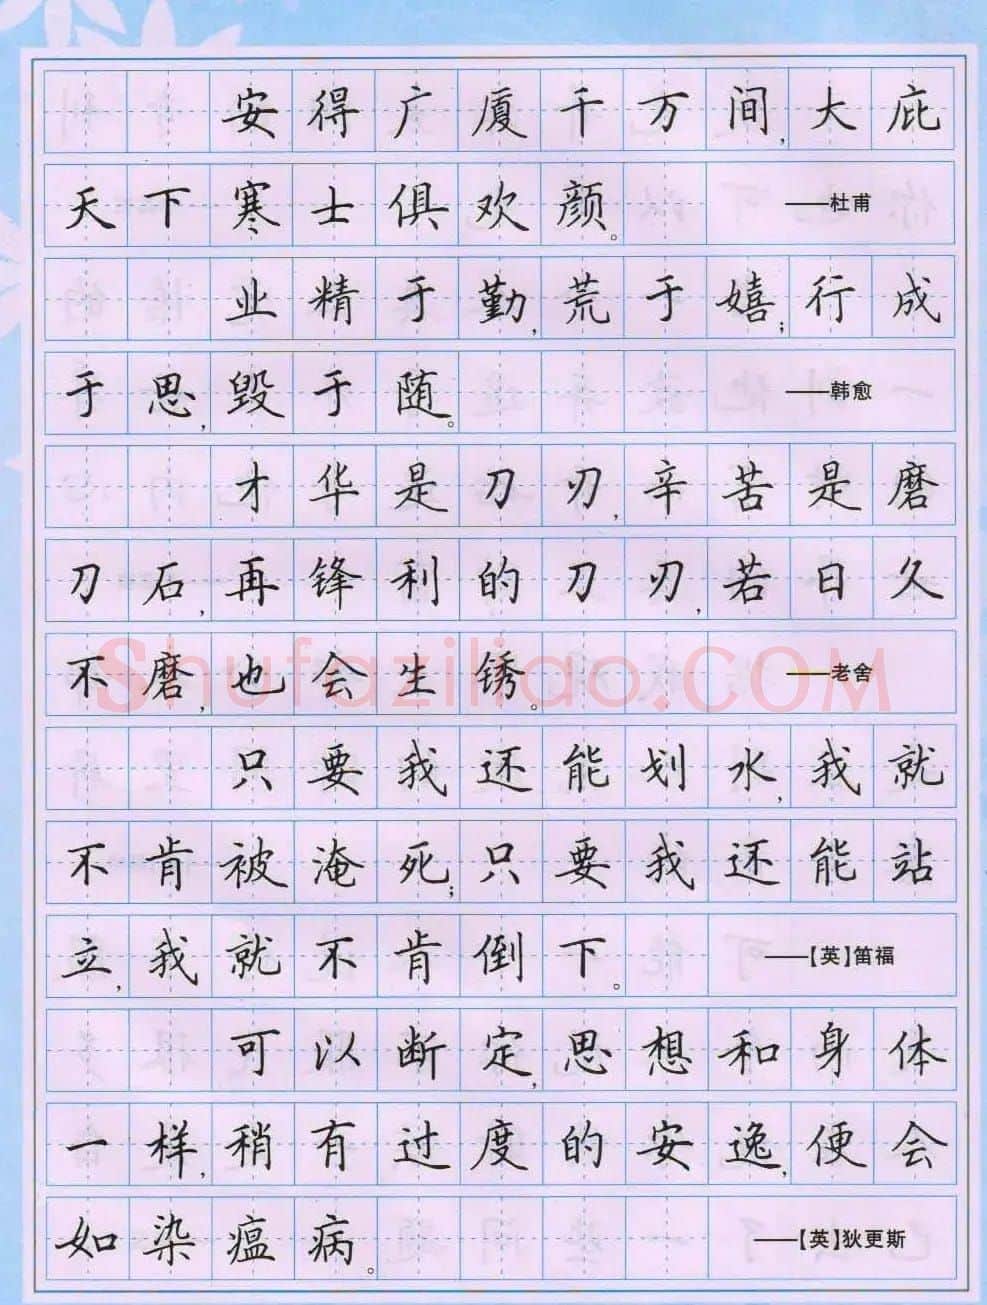 安得广厦千万间,大庇
天下寒士俱欢颜。 ——杜甫
业精于勤,荒于嬉;行成
于思,毁于随。 ——韩愈
才华是刀刃,辛苦是磨
刀石,再锋利的刀刃,若日久
不磨,也会生锈。 ——老舍
Shufaziliao.COM
只要我还能划水,我就
不肯被淹死;只要我还能站
立,我就不肯倒下。 ——【英】笛福
可以断定,思想和身体
一样,稍有过度的安逸,便会
如染瘟病。 ——【英】狄更斯